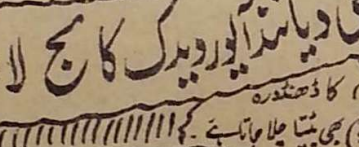 دیانند آیورویدک کالج لا
کا ڈھنڈورہ
بھی پٹتا چلا جاتا ہے